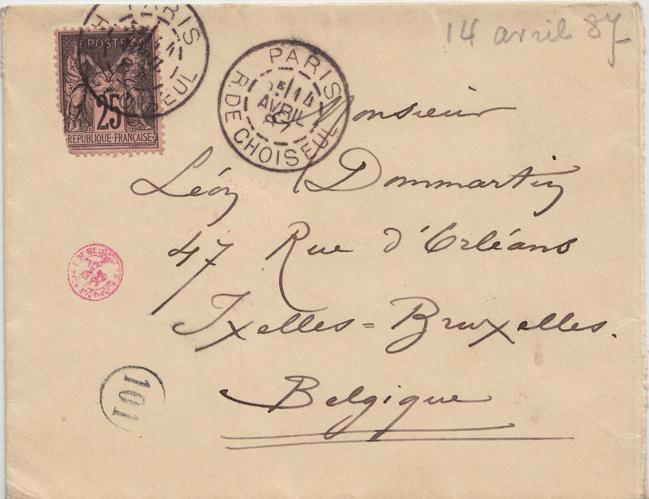 14 avril 87
POSTES
25
REPUBLIQUE FRANÇAISE
PARIS
CHOISEUL
PARIS
14
AVRIL
87
R. DE CHOISEUL
Monsieur
Léon Dommartin
47 Rue d'Orléans
Ixelles=Bruxelles.
Belgique
101